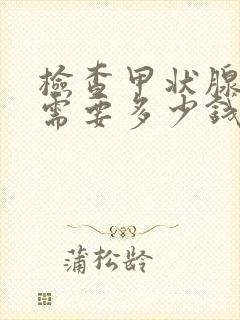 檢查甲状腺
需要多少钱
蒲松龄